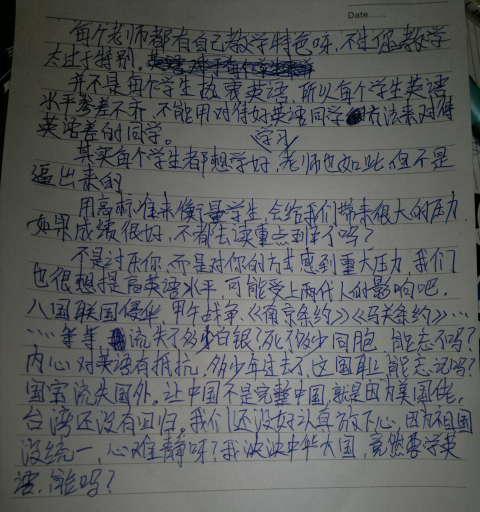 Date
每个老师都有自己教学特色呀,不过你教学
太过于特别,
并不是每个学生都爱英语,所以每个学生英语
水平参差不齐,不能用对待好英语同学学习方法来对待
英语差的同学。
其实每个学生都想学好,老师也如此,但不是
逼出来的
用高标准来衡量学生,会给我们带来很大的压力,
如果成绩很好,不都去读重点到了吗?
不是讨厌你,而是对你的方式感到重大压力,我们
也很想提高英语水平,可能受上两代人的影响吧,
八国联国侵华,甲午战争,《南京条约》《马关条约》……
……等等,流失了多少白银?死多少同胞,能忘不吗?
内心对英语有抵抗,多少年过去了,这国耻能忘记吗?
国宝流失国外,让中国不是完整中国,就是因为美国佬,
台湾还没有回归,我们还没好认真放下心,因为祖国
没统一,心难静呀?我泱泱中华大国,竟然要学英
语,能吗?